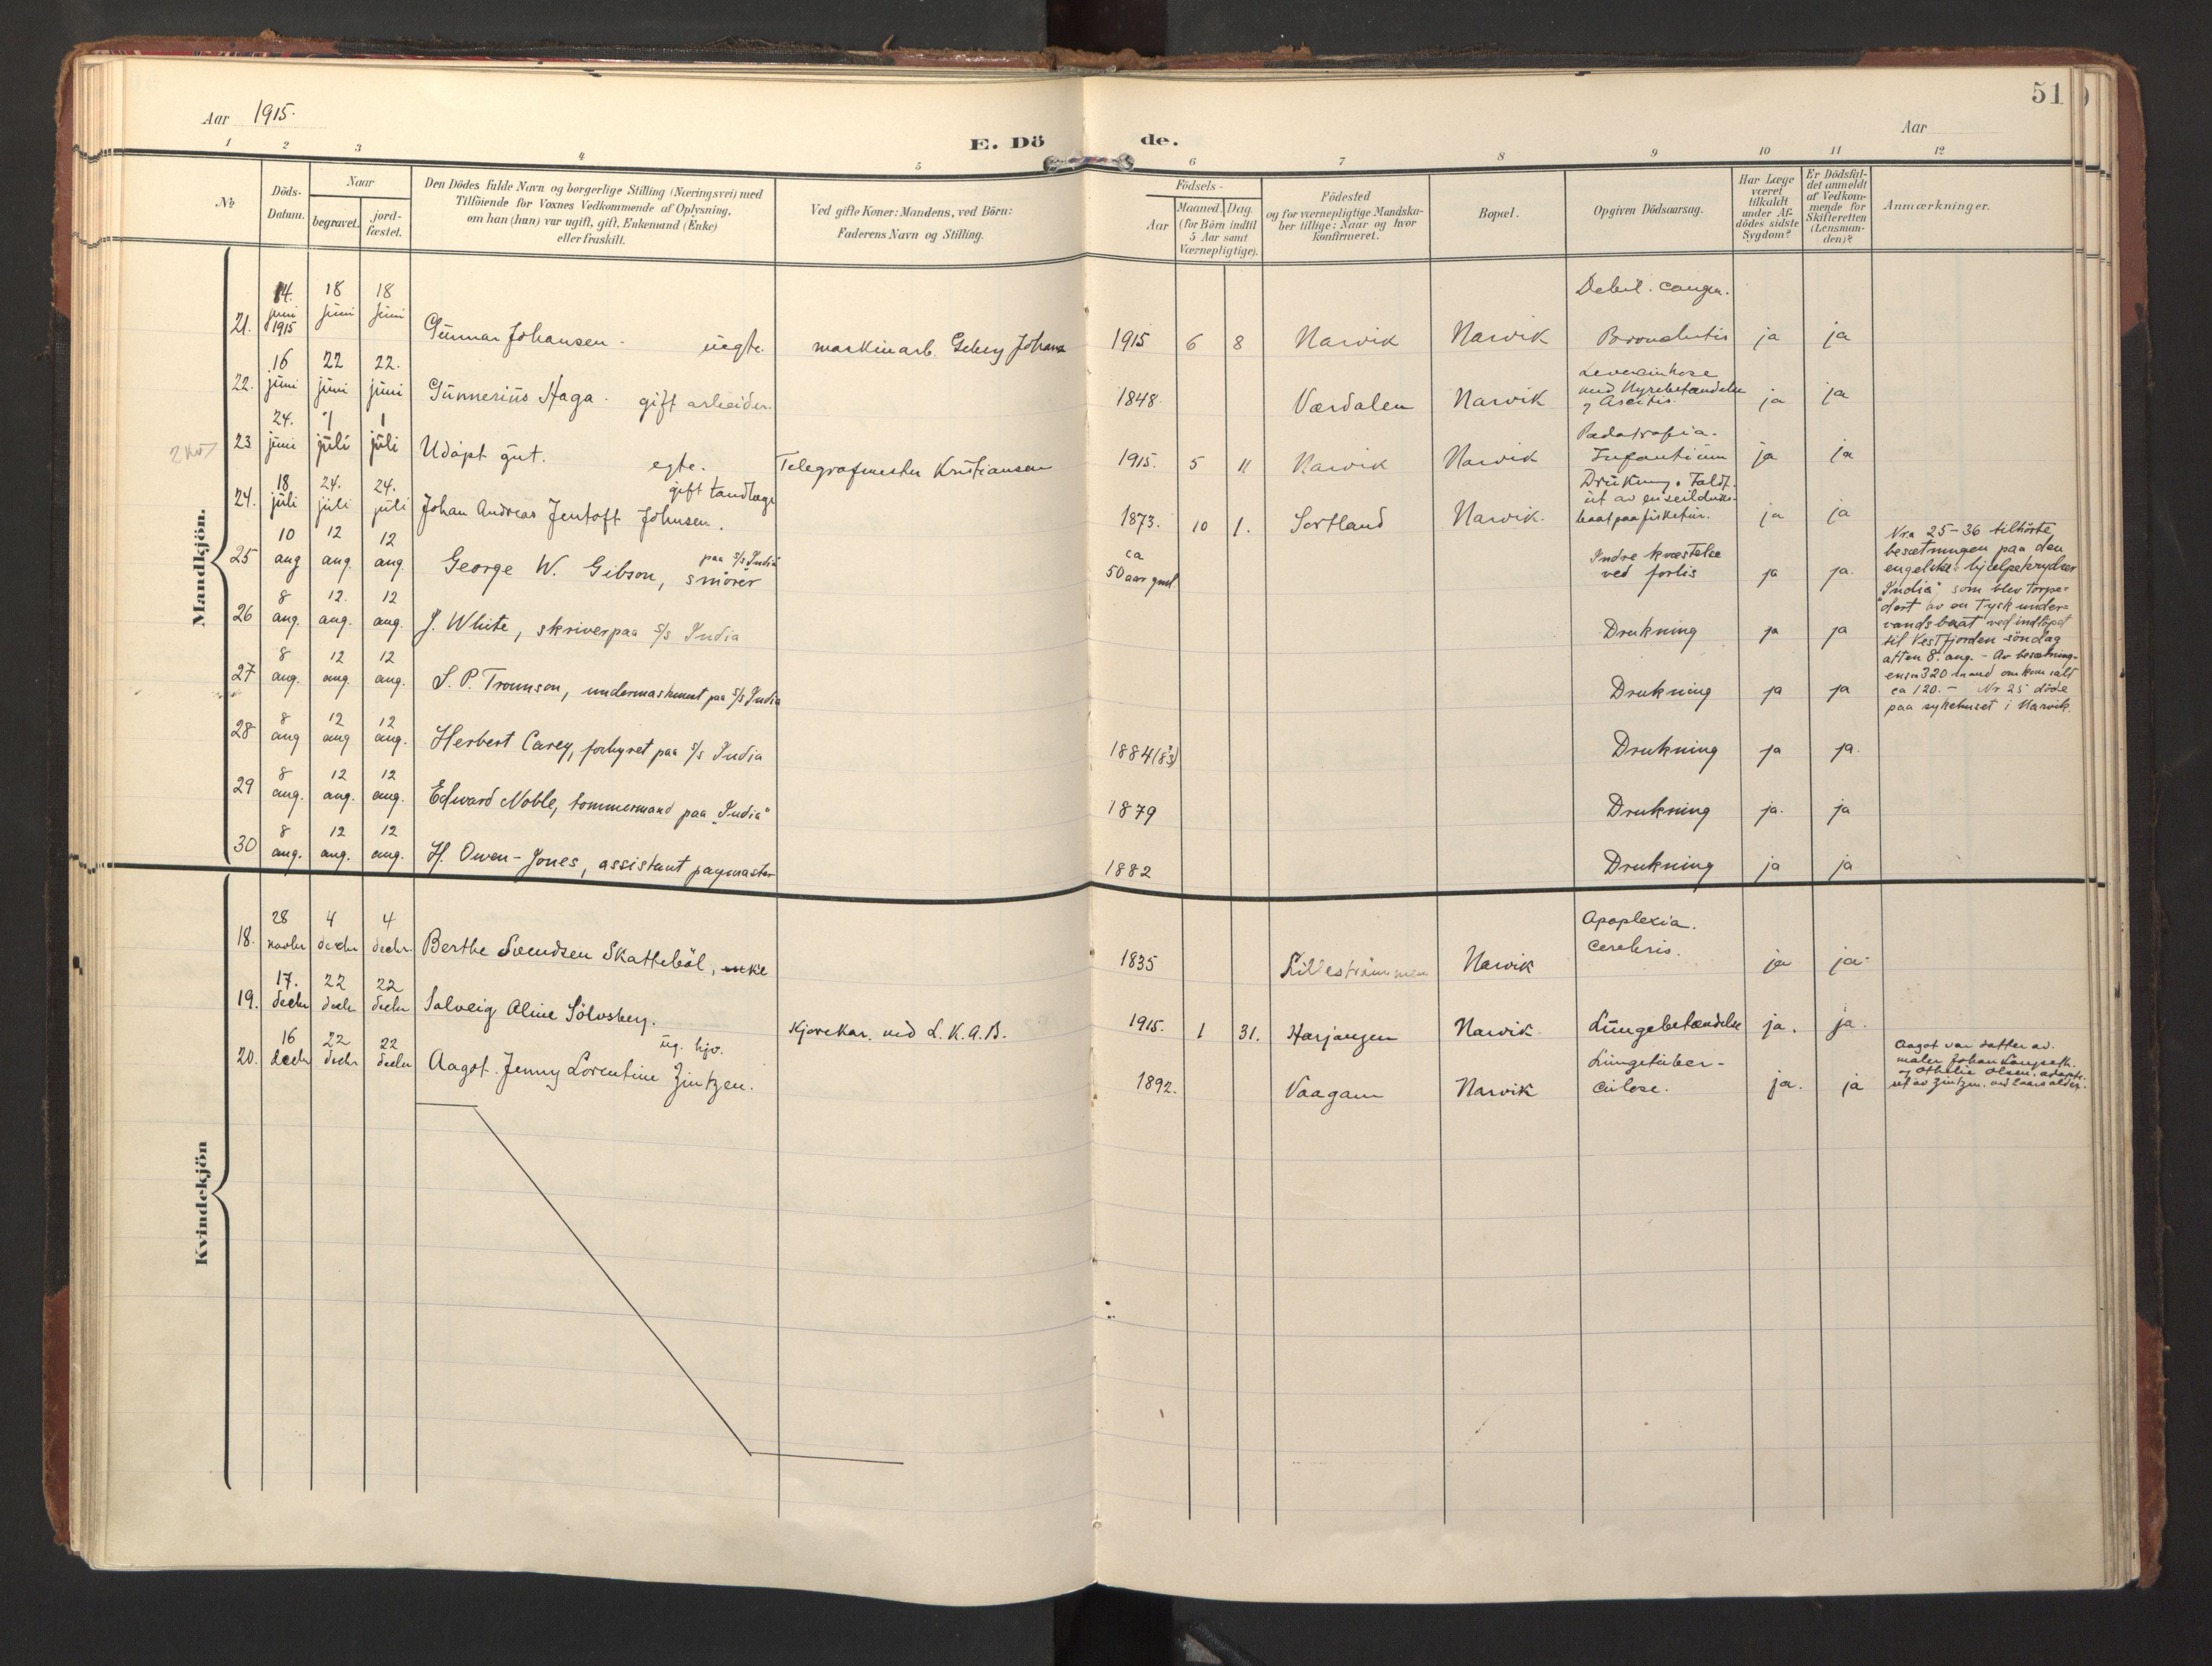 51
Aar 1915.
Aar
E. Döde.
1 2 3 4 5 6 7 8 9 10 11 12
No
Döds-
Datum.
Naar
begravet.
jord-
fæstet.
Den Dödes fulde Navn og borgerlige Stilling (Næringsvei) med
Tilföiende for Voxnes Vedkommende af Oplysning,
om han (hun) var ugift, gift, Enkemand (Enke)
eller fraskilt.
Ved gifte Koner: Mandens, ved Börn:
Faderens Navn og Stilling.
Födsels-
Aar
Maaned. Dag.
(for Börn indtil
5 Aar samt
Værnepligtige).
Födested
og for værnepligtige Mandska-
ber tillige: Naar og hvor
konfirmeret.
Bopæl.
Opgiven Dödsaarsag.
Har Læge
været
tilkaldt
under Af-
dödes sidste
Sygdom?
Er Dödsfal-
det anmeldt
af Vedkom-
mende for
Skifteretten
(Lensman-
den)?
Anmærkninger.
Mandkjön.
21. 14. juni 1915 18 juni 18 juni Gunnar Johansen. uegte. maskinarb. Johans 1915 6 8 Narvik Narvik Debil. congen. Bronchitis ja ja
22. 16 juni 22 juni 22. juni Gunnerius Haga. gift arbeider. 1848. Værdalen Narvik med Nyrebetændelse og Ascitis. ja ja
23 24. juni 1 juli 1 juli Udöpt gut. egte. Telegrafmester Kristiansen 1915. 5 11 Narvik Narvik Pædatrofia. Infantium ja ja
24. 18 juli 24. juli 24. juli Johan Andreas Jentoft Johnsen. gift tandlæge 1873. 10 1. Sortland Narvik. Drukning. Faldt ut av en seildugs- baat paa fisketur. ja ja
25 10 aug 12 aug. 12 aug. George W. Gibson, smörer paa s/s India ca 50 aar gml Indre kvæstelse ved forlis ja ja.
26 8 aug. 12. aug. 12 aug. J. White, skriver paa s/s India Drukning ja ja
27 8 aug. 12 aug. 12 aug. S. P. Trounson, undermaskinist paa s/s India Drukning ja ja
28 8 aug 12 aug 12 aug. Herbert Carey, forhyret paa s/s India 1884 (83?) Drukning ja ja.
29 8 aug. 12 aug. 12 aug. Edward Noble, tommermand paa "India" 1879 Drukning ja. ja
30 8 aug. 12 aug. 12 aug. H. Owen-Jones, assistant paymaster 1882 Drukning ja ja
Nr.a 25-36 tilhörte
besætningen paa den
engelske hjælpekrydser
"India", som blev torpe-
dert av en tysk under-
vandsbaat ved indlöpet
til Vestfjorden söndag
aften 8. aug. - Av besætning-
ens 320 mand omkom ialt
ca 120. - Nr 25 döde
paa sykehuset i Narvik.
Kvindekjön
18. 28 novbr 4 decbr 4 decbr. Berthe Svendsen Skatteböl, enke 1835 Lilleströmmen Narvik Apoplexia. cerebris. ja ja.
19. 17. decbr 22 decbr 22 decbr Solveig Aline Sölvsberg. Kjörekar. ved L.K.A.B. 1915. 1 31. Harjangen Narvik. Lungebetændelse ja. ja.
20. 16 decbr 22 decbr 22 decbr Aagot Jenny Lorentine Zintzen. ug. hjv. 1892. Vaagan Narvik Lungetuber- culose. ja. ja
Aagot var datter av.
maler Johan
og Othelie Olsen, adopte-
ret av Zintzen.